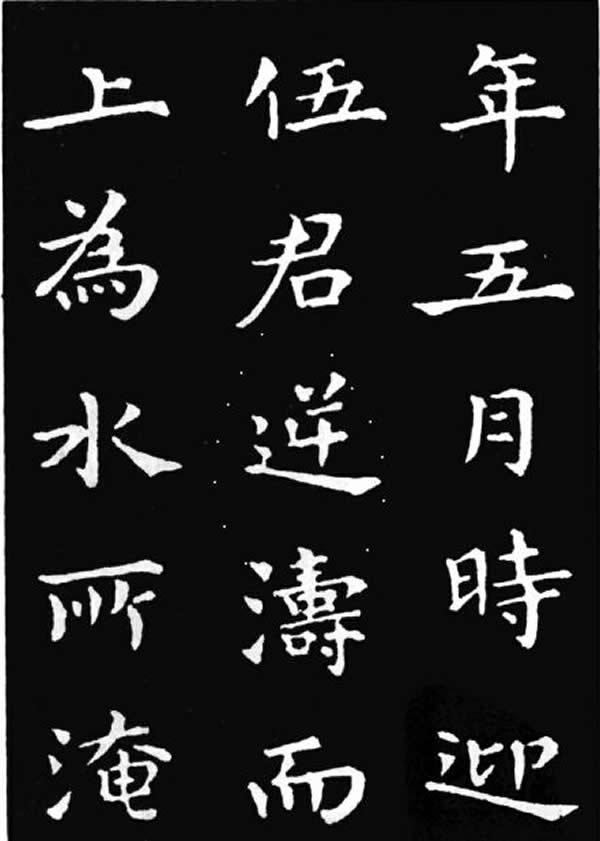 年五月時迎
伍君逆濤而
上為水所淹